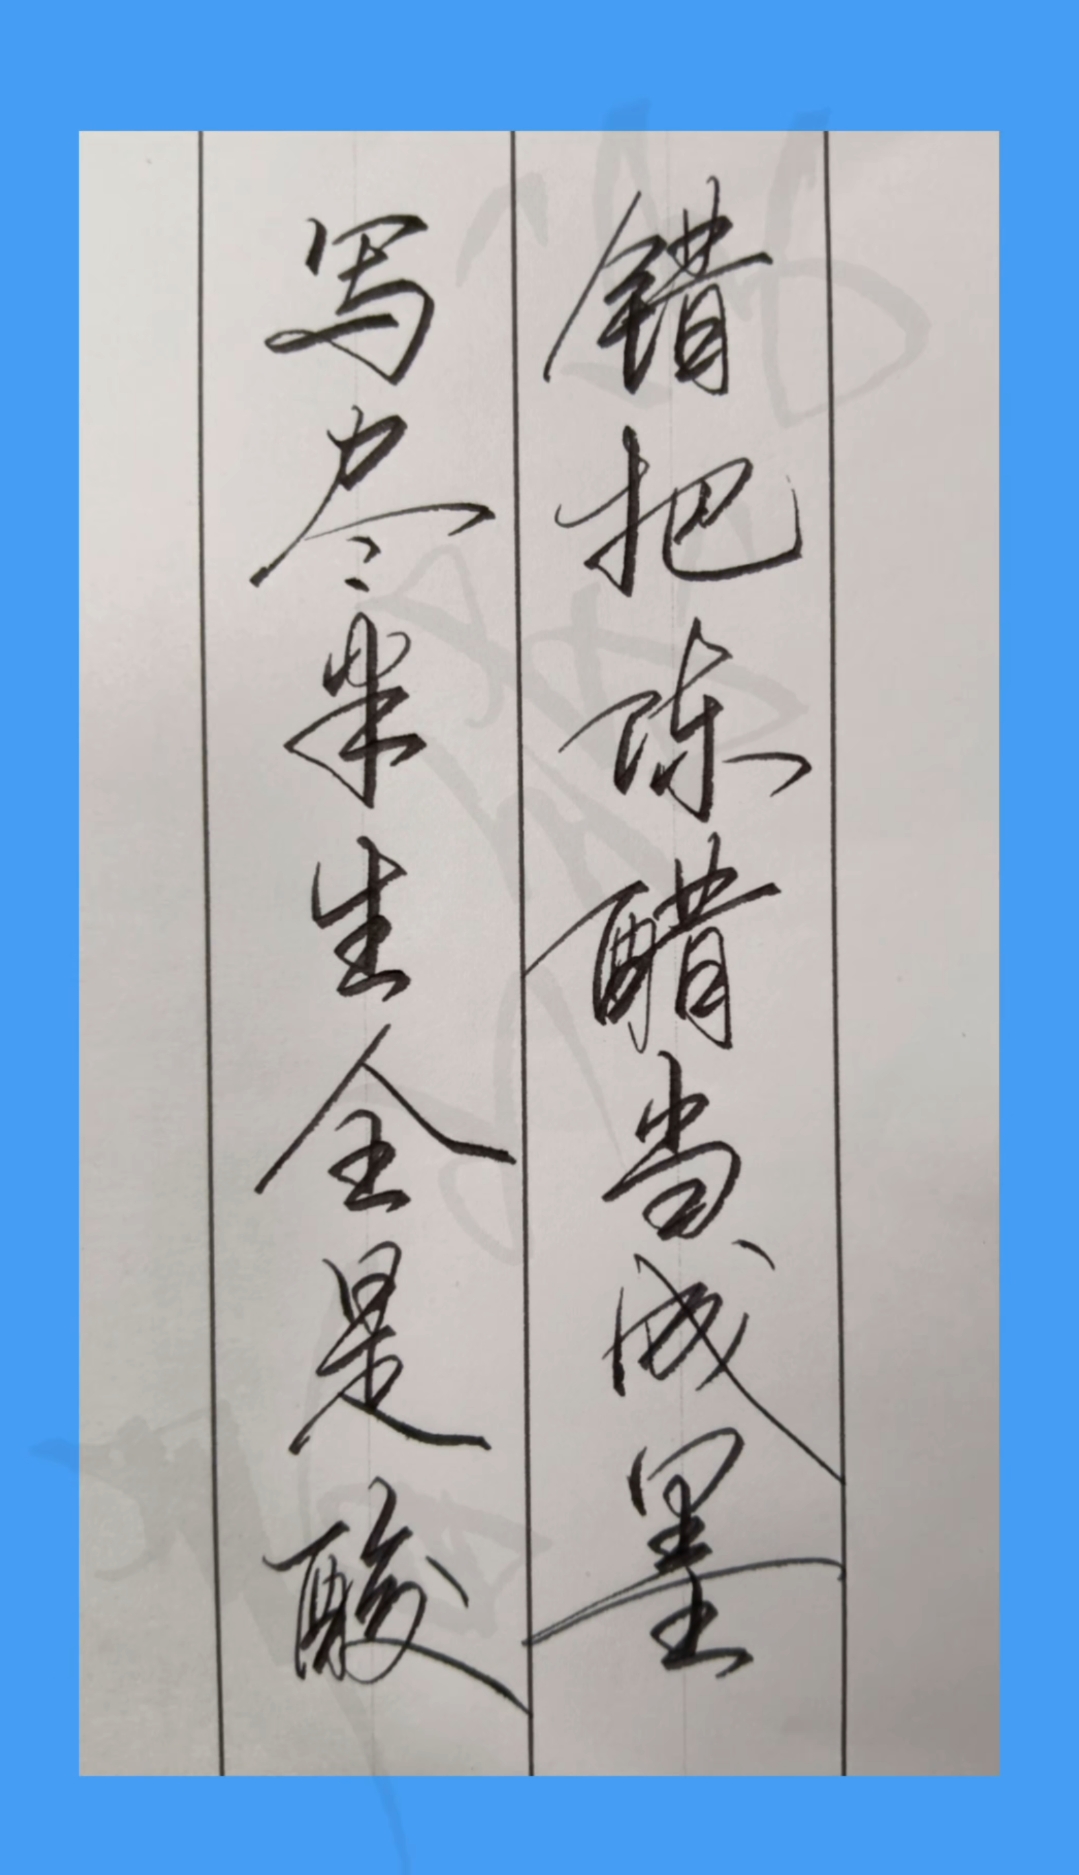 错把陈醋当成墨
写尽半生全是酸